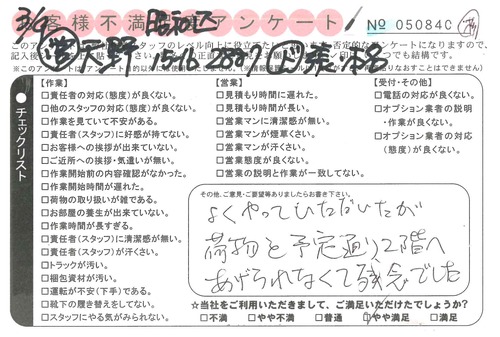 お客様不満足アンケート!
昭和区
№ 05084C
3/9 営 天野 1516 2337 東・本名
このア
記入後
【作業】
□責任者の対応(態度)が良くない。
□他のスタッフの対応(態度)が良くない。
□作業を見ていて不安がある。
□責任者(スタッフ)に好感が持てない。
□お客様への挨拶が出来ていない。
□ご近所への挨拶・気遣いが無い。
□作業開始前の内容確認がなかった。
□作業開始時間が遅れた。
□荷物の取り扱いが雑である。
□お部屋の養生が出来ていない。
□作業時間が長すぎる。
□責任者(スタッフ)に清潔感が無い。
□責任者(スタッフ)が汗くさい。
□トラックが汚い。
□梱包資材が汚い。
□運転が不安(下手)である。
□靴下の履き替えをしてない。
□スタッフにやる気がみられない。
チェックリスト
【営業】
□見積もり時間に遅れた。
□見積もり時間が長い。
□営業マンに清潔感が無い。
□営業マンが煙草くさい。
□営業マンが汗くさい。
□営業態度が良くない。
□営業の説明と作業が一致してない。
【受付・その他】
□電話の対応が良くない。
□オプション業者の説明
・作業が良くない。
□オプション業者の対応
(態度)が良くない。
その他、ご意見・ご要望等ありましたらお書き下さい。
よくやっていただいたが
荷物を予定通り2階へ
あげられなくて残念でした
☆当社をご利用いただきまして、ご満足いただけたでしょうか?
□不満 □やや不満 □普通 □やや満足 □満足